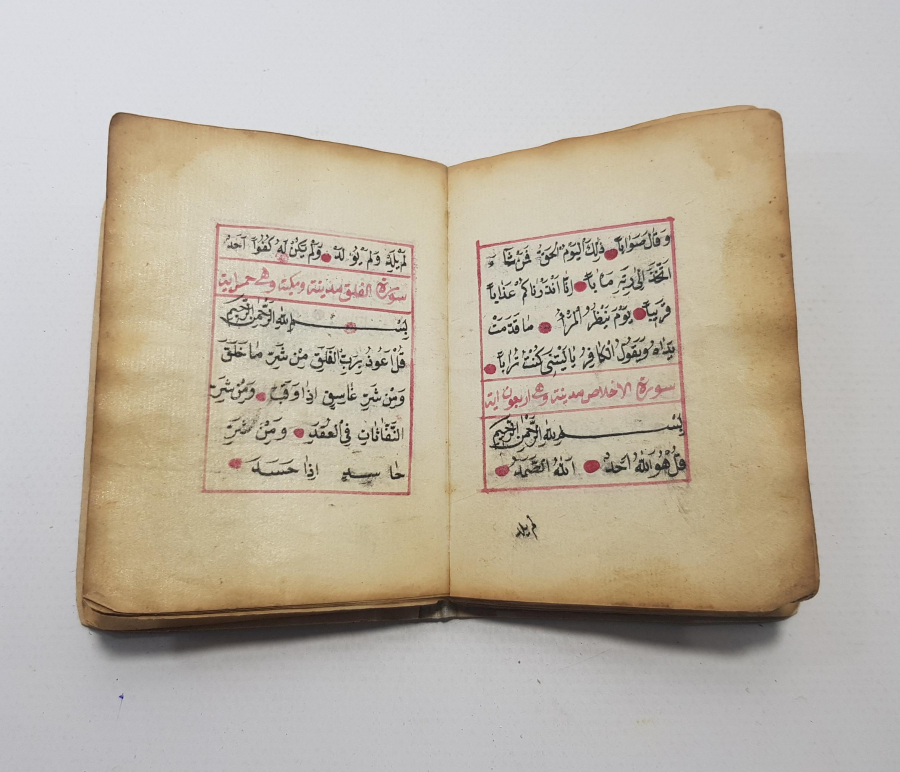 وَقَالَ صَوَاباً ذٰلِكَ الْيَوْمُ الْحَقُّ فَمَنْ شَاءَ
اتَّخَذَ اِلٰى رَبِّهِ مَاٰباً اِنَّا اَنْذَرْنَاكُمْ عَذَاباً
قَرِيباً يَوْمَ يَنْظُرُ الْمَرْءُ مَا قَدَّمَتْ
يَدَاهُ وَيَقُولُ الْكَافِرُ يَا لَيْتَنِى كُنْتُ تُرَاباً
سورة الاخلاص مدينة وهى اربعون اية
بِسْمِ اللهِ الرَّحْمٰنِ الرَّحِيمِ
قُلْ هُوَ اللّٰهُ اَحَدٌ اَللّٰهُ الصَّمَدُ
لم يلد
لَمْ يَلِدْ وَلَمْ يُولَدْ وَلَمْ يَكُنْ لَهُ كُفُوًا اَحَدٌ
سورة الفلق مدينة ومكية وهى خمس اية
بِسْمِ اللهِ الرَّحْمٰنِ الرَّحِيمِ
قُلْ اَعُوذُ بِرَبِّ الْفَلَقِ مِنْ شَرِّ مَا خَلَقَ
وَمِنْ شَرِّ غَاسِقٍ اِذَا وَقَبَ وَمِنْ شَرِّ
النَّفَّاثَاتِ فِى الْعُقَدِ وَمِنْ شَرِّ
حَاسِدٍ اِذَا حَسَدَ